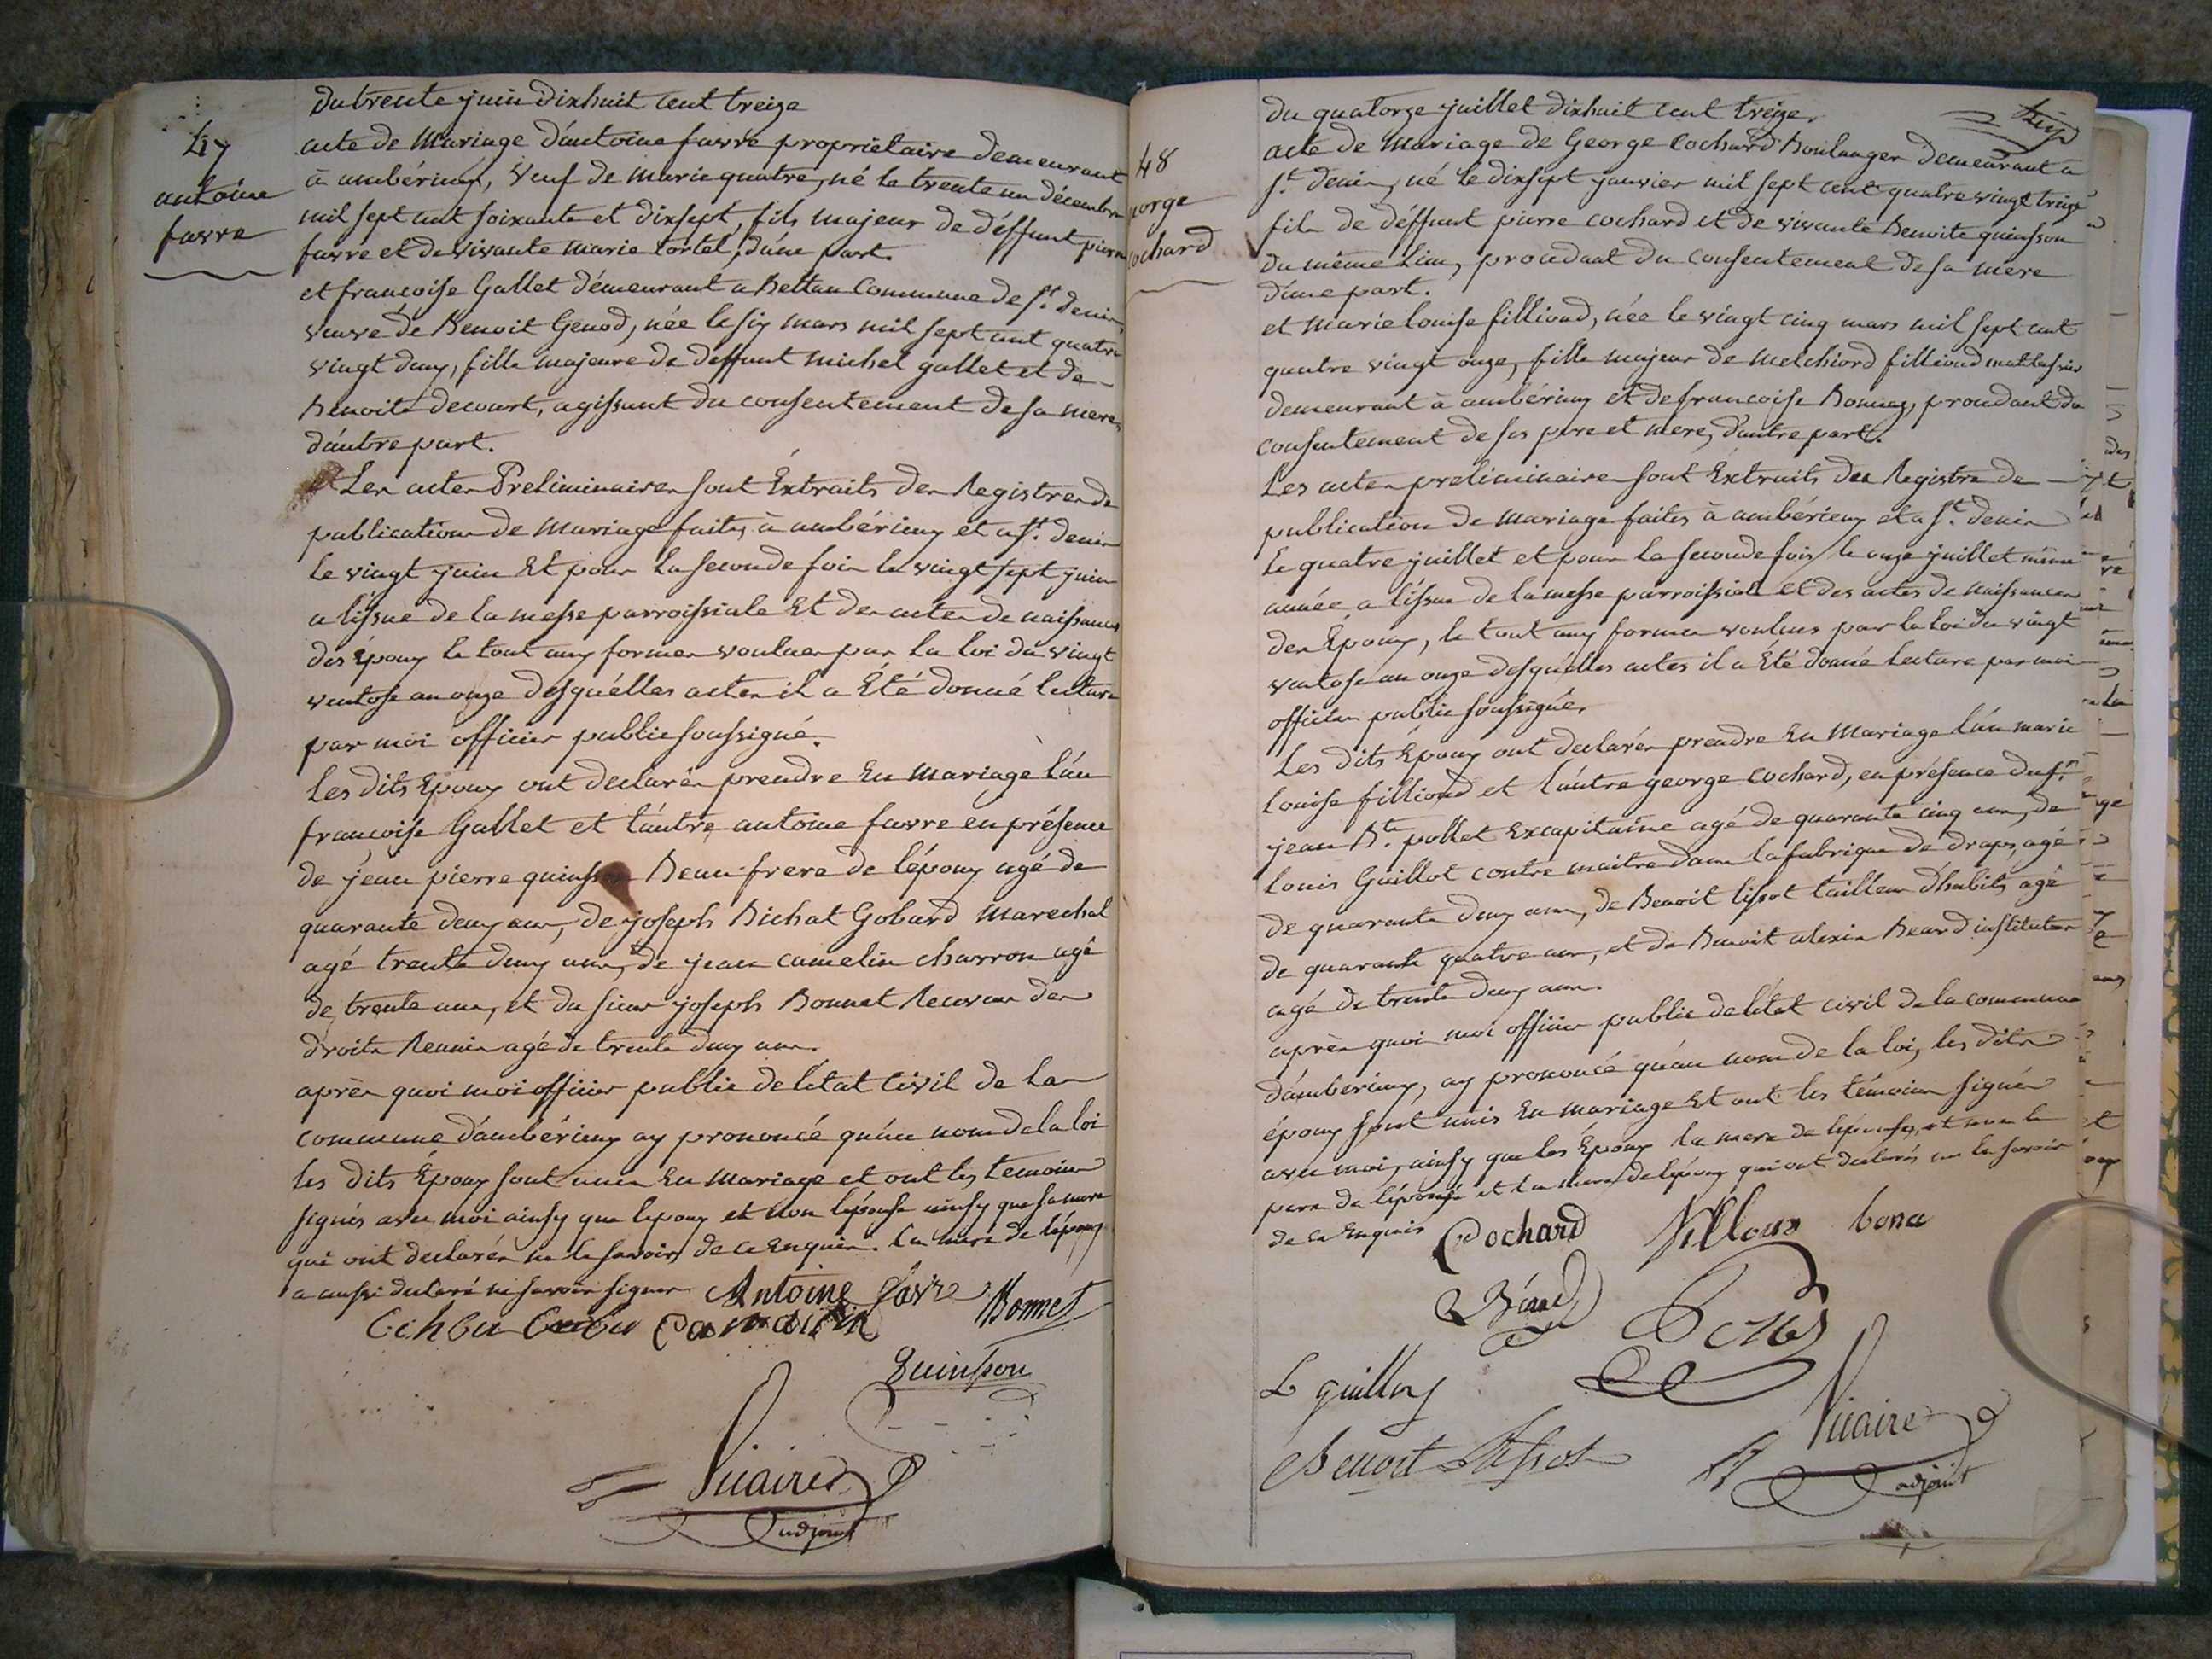 du trente juin dixhuit cent treize
47
antoine
favre
acte de Mariage d'antoine favre propriétaire demeurant
à ambérieux, veuf de marie quatre, né le trente un décembre
mil sept cent soixante et dixsept, fils majeur de déffunt pierre
favre et de vivante marie tortel, d'une part.
et francoise Gallet démeurant a Bettan Commune de St. denis
veuve de Benoit Genod, née le six mars mil sept cent quatre
vingt deux, fille majeure de deffunt michel gallet et de
Benoite decourt, agissant du consentement de sa mere,
d'autre part.
Les actes Preliminaires sont Extraits des Registres de
publications de mariage faites à ambérieux et a St. denis
le vingt juin Et pour la seconde fois le vingt sept juin
a l'issue de la messe parroissiale Et des actes de naissances
des Epoux le tout aux formes voulues par la loi du vingt
ventose an onze desquélles actes il a Eté donné lecture
par moi officier public soussigné.
Les dits Epoux ont declarés prendre En mariage l'un
francoise Gallet et l'autre antoine favre en présence
de jean pierre quinson Beau frere de lépoux agé de
quarante deux ans, de joseph Bichat Gobard Marechal
agé trente deux ans, de jean camelin charron agé
de trente ans, et du sieur joseph Bonnet Receveur des
droits Reunis agé de trente deux ans.
après quoi moi officier public de létat Civil de la
commune d'ambérieux ay prononcé qu'au nom de la loi
les dits Epoux sont unis En mariage et ont les temoins
signés avec moi ainsy que lepoux et non lépouse ainsy que sa mere
qui ont declarés ne le savoir de ce Enquis. la mere de lépoux
a aussi declaré ne savoir signer Antoine favre
Bonnet
quinson
Vicaire
adjoint
48
george
cochard
du quatorze juillet dixhuit cent treize,
acte de Mariage de George Cochard Boulanger demeurant a
St. denis, né le dixsept janvier mil sept cent quatre vingt treize
fils de déffunt pierre cochard et de vivante Benoite quinsson
du même lieu, procedant du consentement de sa mere
d'une part.
et marie louise fillioud, née le vingt cinq mars mil sept cent
quatre vingt onze, fille majeur de melchiord fillioud mattlassier
demeurant à ambérieux et de francoise Bonnaz, procedant du
consentement de ses pere et mere, d'autre part.
Les actes preliminaires sont Extraits des Registre de
publication de Mariage faites à ambérieux et a St. denis
le quatre juillet et pour la seconde fois le onze juillet même
année a l'issue de la messe parroissiale et des actes de naissances
des Epoux, le tout aux formes voulues par la loi du vingt
ventose an onze desquelles actes il a Eté donné lecture par moi
officier public soussigné.
Les dits Epoux ont declarés prendre En Mariage l'un marie
louise filliond et l'autre george cochard, en présence du sr.
jean Bte. pollet Excapitaine agé de quarante cinq ans, de
louis Guillot contre maitre dans la fabrique de draps, agé
de quarante deux ans, de Benoit tissot tailleur d'habits agé
de quarante quatre ans, et de Benoit alexis Beard instituteur
agé de trente deux ans.
après quoi moi officier public de létat civil de la commune
d'amberieux, ay prononcé qu'au nom de la loi, les dits
époux sont unis En mariage Et ont les témoins signés
avec moi, ainsy que les Epoux la mere de lépouse, et non le
pere de lépouse et la mere de lépoux qui ont declarés ne le savoir
de ce Enquis Cochard
L guillot
Benoit Tissot
Vicaire
adjoint